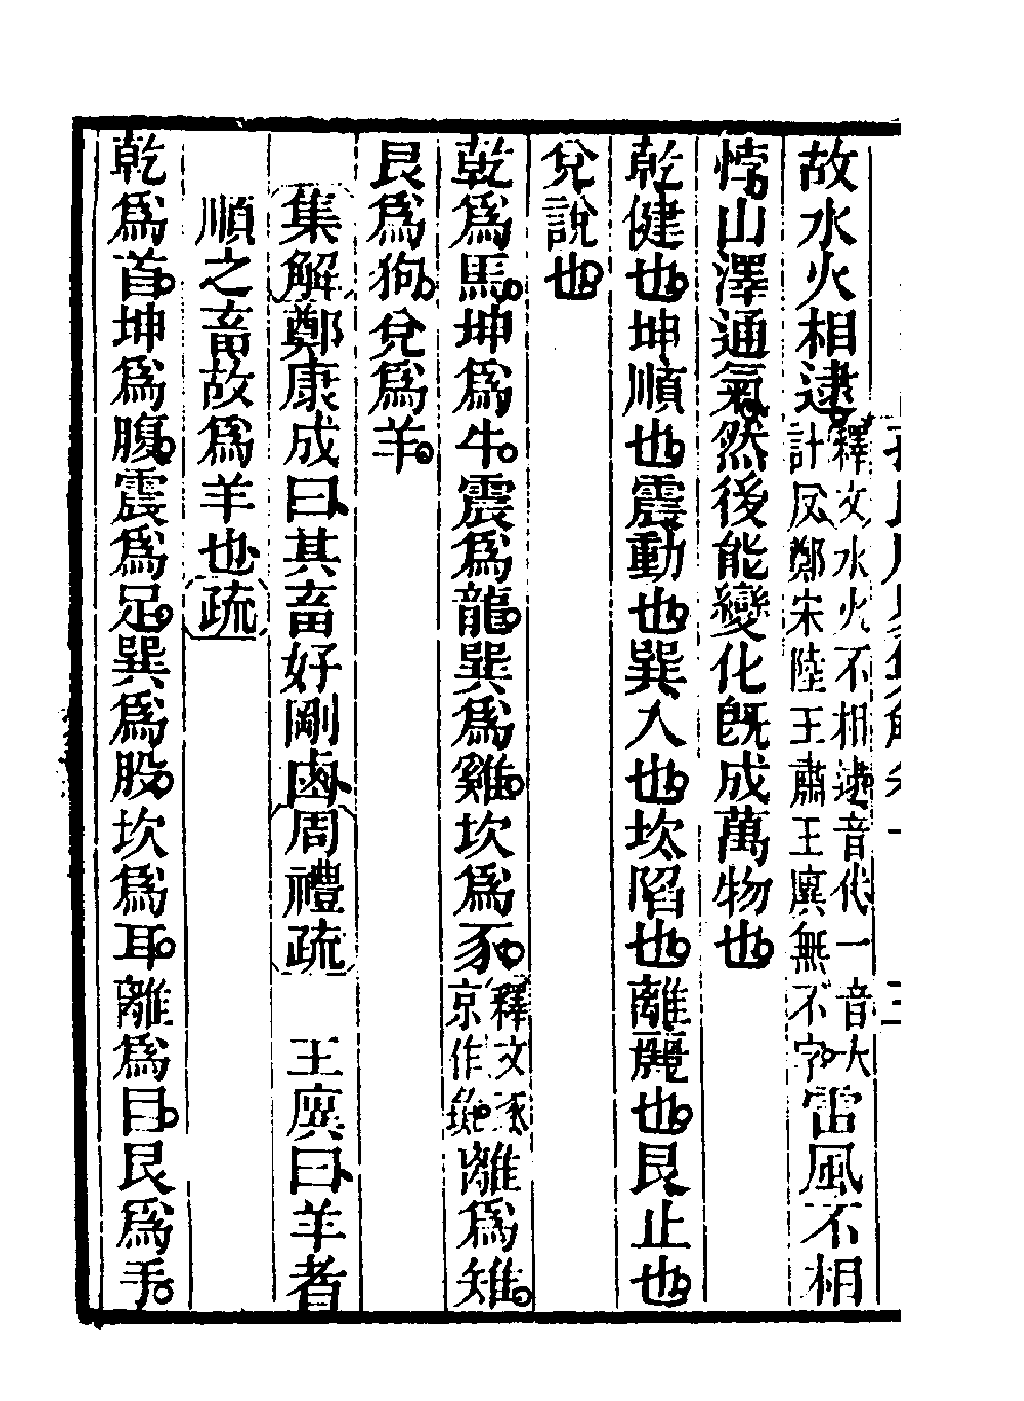 故水火相逮釋文水火不相逮音代一音大計反鄭宋陸王肅王廙無不字雷風不相
悖山澤通氣然後能變化旣成萬物也
乾健也坤順也震動也巽入也坎陷也離麗也艮止也
兌說也
乾爲馬坤爲牛震爲龍巽爲雞坎爲豕釋文豕京作彘離爲雉
艮爲狗兌爲羊
集解鄭康成曰其畜好剛鹵周禮疏 王廙曰羊者
順之畜故爲羊也疏
乾爲首坤爲腹震爲足巽爲股坎爲耳離爲目艮爲手